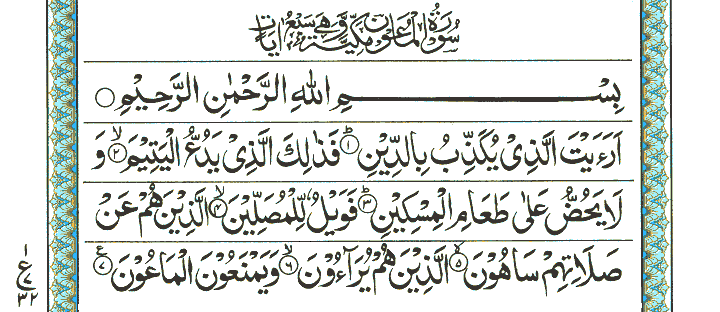 سُورَةُ الْمَاعُونِ مَكِّيَّةٌ وَّهِيَ سَبْعُ اٰيَاتٍ
بِسْــــــــــــمِ اللهِ الرَّحْمٰنِ الرَّحِيْمِ ○
اَرَءَيْتَ الَّذِىْ يُكَذِّبُ بِالدِّيْنِ ؕ۝۱ فَذٰلِكَ الَّذِىْ يَدُعُّ الْيَتِيْمَ ۙ۝۲ وَ
لَا يَحُضُّ عَلٰى طَعَامِ الْمِسْكِيْنِ ؕ۝۳ فَوَيْلٌ لِّلْمُصَلِّيْنَ ۙ۝۴ الَّذِيْنَ هُمْ عَنْ
صَلَاتِهِمْ سَاهُوْنَ ۙ۝۵ الَّذِيْنَ هُمْ يُرَآءُوْنَ ۙ۝۶ وَيَمْنَعُوْنَ الْمَاعُوْنَ ۝۷
۱
ع
۷
۳۲